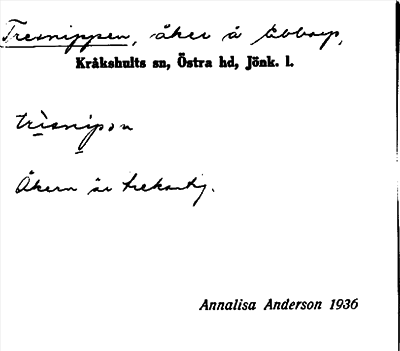 Tresnippen, åker å Ebbarp,
Kråkshults sn, Östra hd, Jönk. l.
trisnipən
Åkern är trekantig.
Annalisa Anderson 1936